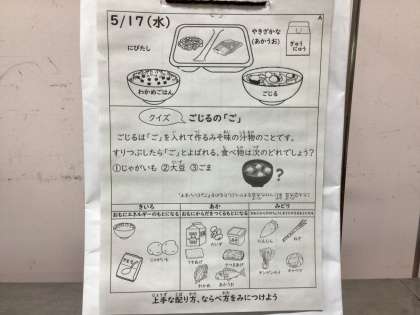 5/17(水)
A
にびたし
やきざかな
(あかうお)
ぎゅう
にゅう
わかめごはん
ごじる
クイズ
ごじるの「ご」
ごじるは「ご」を入れて作るみそ味の汁物のことです。
すりつぶしたら「ご」とよばれる、食べ物は次のどれでしょう?
①じゃがいも ②大豆 ③ごま
?
きいろ
あか
みどり
おもにエネルギーのもとになる
おもにからだをつくるもとになる
じゃがいも
だいず
わかめ
あかうお
にんじん
ねぎ
キャベツ
上手な配り方、ならべ方をみにつけよう